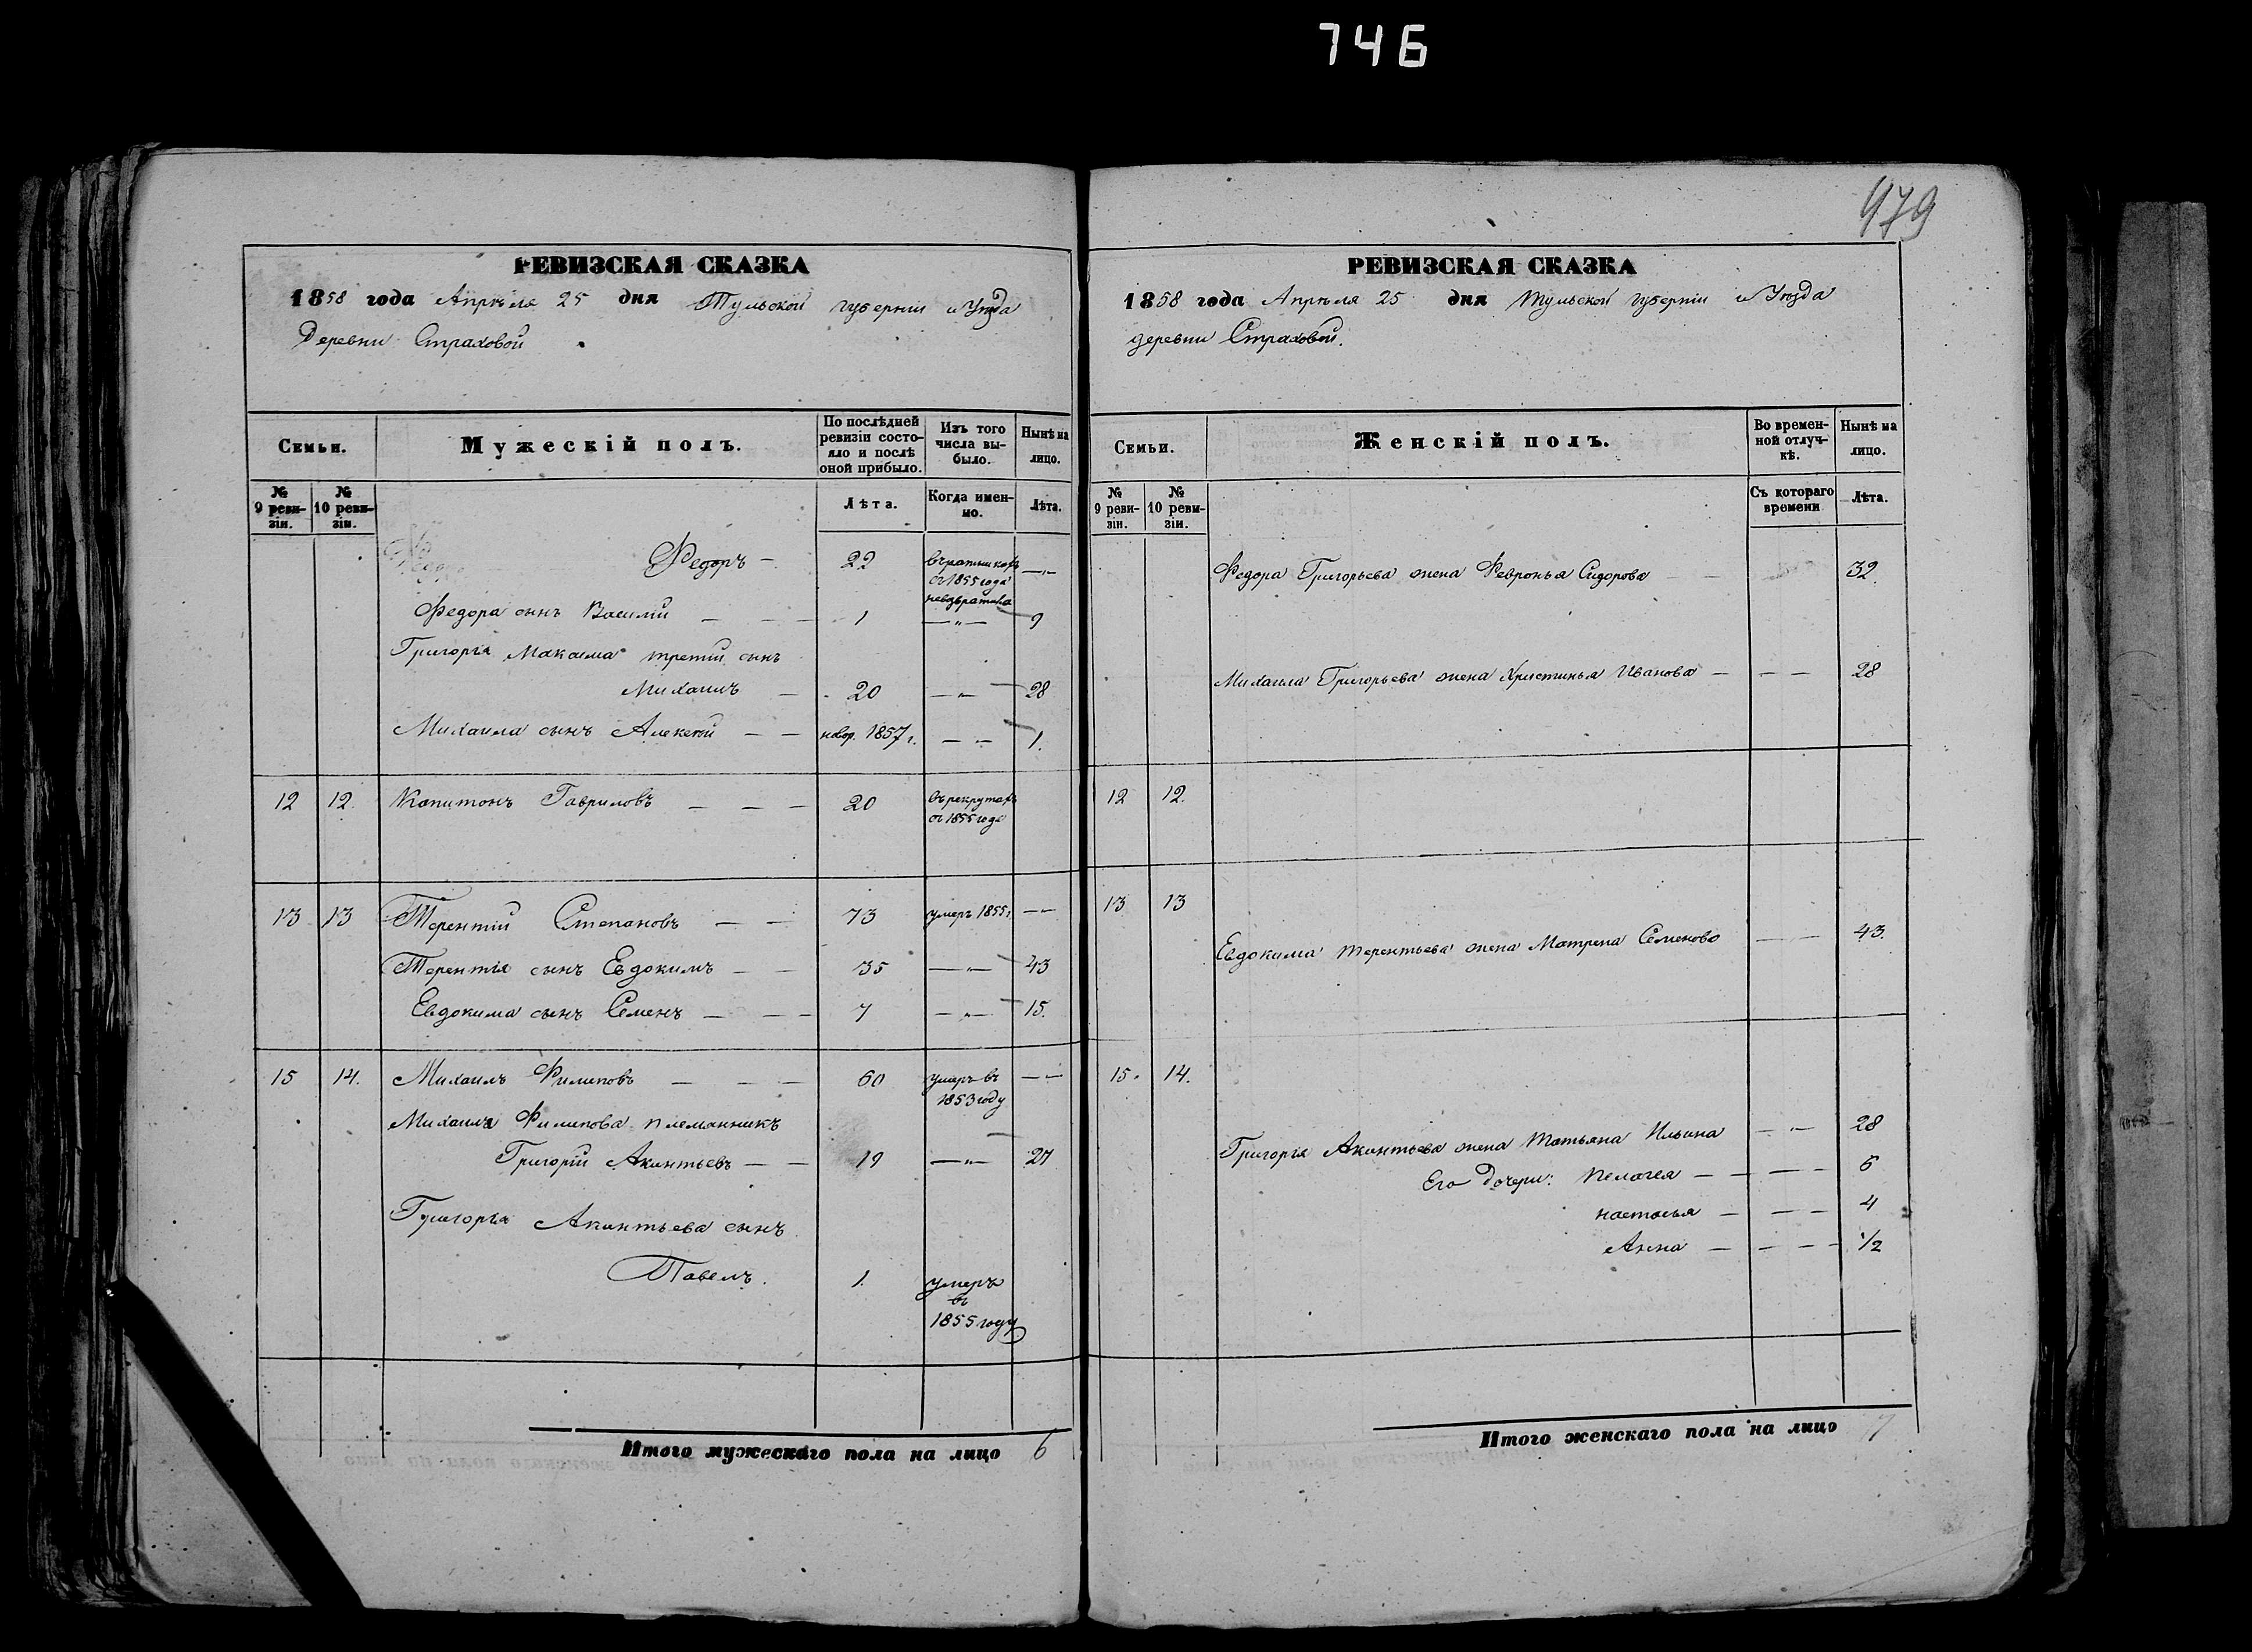 746
979
РЕВИЗСКАЯ СКАЗКА
1858 года Апрѣля 25 дня Тульской губерніи и Уѣзда
Деревни Страховой
Семьи.
Мужескій полъ.
По послѣдней ревизіи состояло и послѣ оной прибыло.
Изъ того числа выбыло.
Нынѣ на лицо.
№ 9 ревизіи.
№ 10 ревизіи.
Лѣта.
Когда именно.
Лѣта.
Федоръ — 22 въ ратникахъ съ 1855 года невозвратился —"—
Федора сынъ Василій — — — 1 —"— 9
Григорія Максима третій сынъ
Михаилъ — 20 —"— 28
Михаила сынъ Алексей — — новор. 1857 г. — — 1.
12 12. Капитонъ Гавриловъ — — — 20 въ рекрутахъ съ 1855 года
13 13 Терентій Степановъ — — 73 умеръ 1855 г. —"—
Терентія сынъ Евдокимъ — — 35 —"— 43
Евдокима сынъ Семенъ — — — 7 —"— 15.
15 14. Михаилъ Филиповъ — — — 60 умеръ въ 1853 году —"—
Михаила Филипова племянникъ
Григорій Акинтьевъ — — 19 —"— 27
Григорія Акинтьева сынъ
Павелъ. 1. умеръ въ 1855 году
Итого мужескаго пола на лицо 6
РЕВИЗСКАЯ СКАЗКА
1858 года Апрѣля 25 дня Тульской губерніи и Уѣзда
деревни Страховой.
Семьи.
Женскій полъ.
Во временной отлучкѣ.
Нынѣ на лицо.
№ 9 ревизіи.
№ 10 ревизіи.
Съ котораго времени
Лѣта.
Федора Григорьева жена Февронья Сидорова — — 32.
Михаила Григорьева жена Христинья Иванова — — — 28
12 12.
13 13
Евдокима Терентьева жена Матрена Семенова — — 43.
15. 14.
Григорія Акинтьева жена Татьяна Ильина —"— 28
Его дочери: Пелагея — — — — 6
настасья — — — 4
Анна — — — — 1/2
Итого женскаго пола на лицо 7